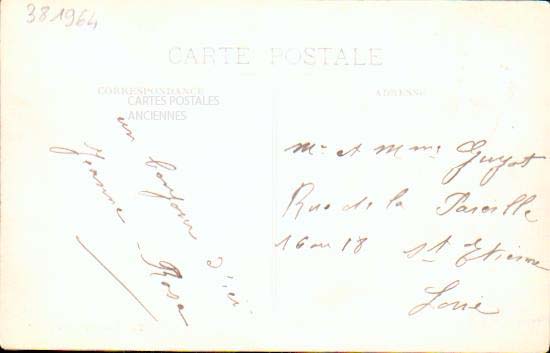 381964
CARTE POSTALE
CORRESPONDANCE
ADRESSE
CARTES POSTALES
ANCIENNES
un bonjour d'ici
Jeanne - Rosa
Mr et Mme Guyot
Rue de la Pareille
16 ou 18 St Etienne
Loire